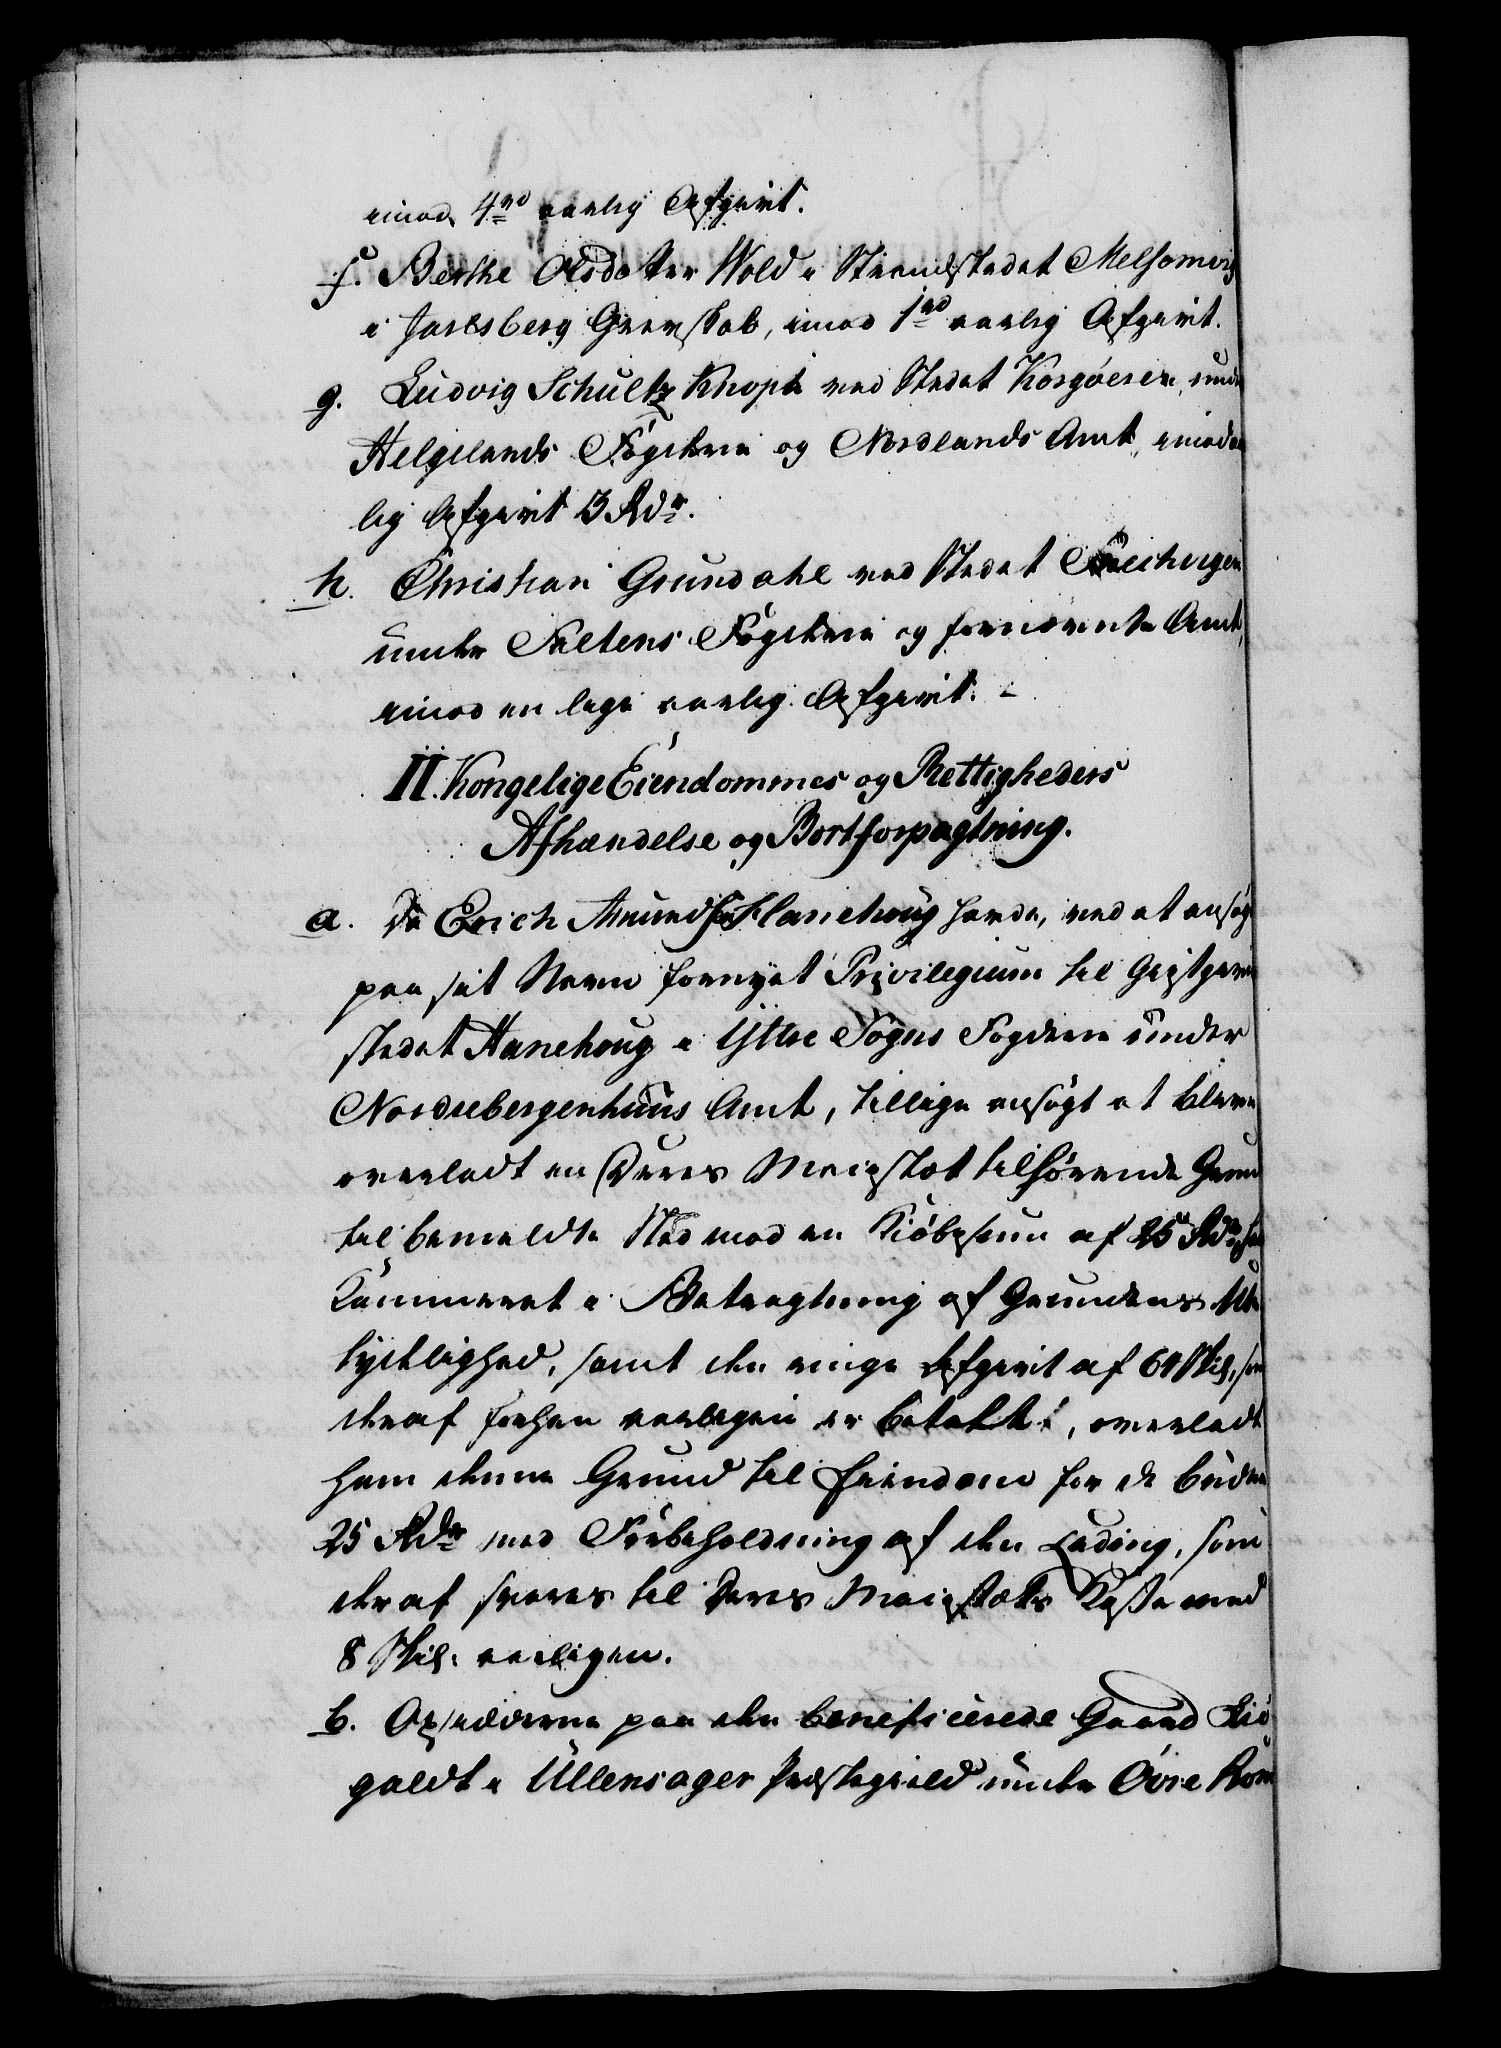 imod 4 rd aarlig Afgivt.
f. Berthe Olsdatter Wold i Strandstedet Melsomvig
i Jarlsberg Grevskab, imod 1 rd aarlig Afgivt.
g. Ludvig Schultz Knoph ved Stedet Korsøeren, under
Helgelands Fogderie og Nordlands Amt, imod aar
lig Afgivt 3 Rdr.
h. Christian Grundahl ved Stedet
under Saltens Fogderie og fornævnte Amt,
imod en lige aarlig Afgivt.
II. Kongelige Eiendommes og Rettigheders
Afhændelse og Bortforpagtning.
a. Da Erich Amundsen Hanehoug havde, ved at ansøge
paa sit Navn fornyet Privilegium til Gjestgiver
stedet Hanehoug i Yttre Sogns Fogderie under
Nordrebergenhuus Amt, tillige ansøgt at blive
overladt en Deres Majestæt tilhørende Grund
til bemeldte Sted mod en Kiøbesum af 25 Rdr, har
Kammeret i Betragtning af Grundens Ube
tydelighed, samt den ringe Afgivt af 64 Skil., som
deraf forhen aarligen er betalt, overladt
ham denne Grund til Eiendom for de budne
25 Rdr med Forbeholdning af den Leding, som
deraf svares til Deres Majestæts Kasse med
8 Skil. aarligen.
b. Opsidderne paa den beneficerede Gaard Li
galdt i Ullensager Præstegield under Övre Rom